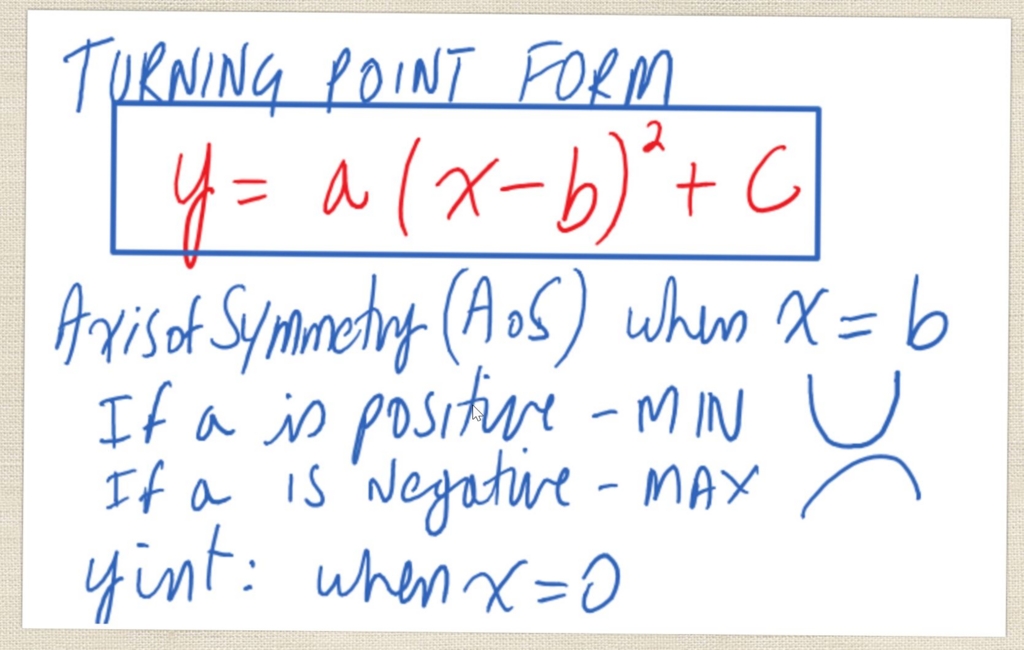 TURNING POINT FORM
y = a (x-b)² + c
Axis of Symmetry (AoS) when x = b
If a is positive - MIN
If a is Negative - MAX
y int: when x = 0